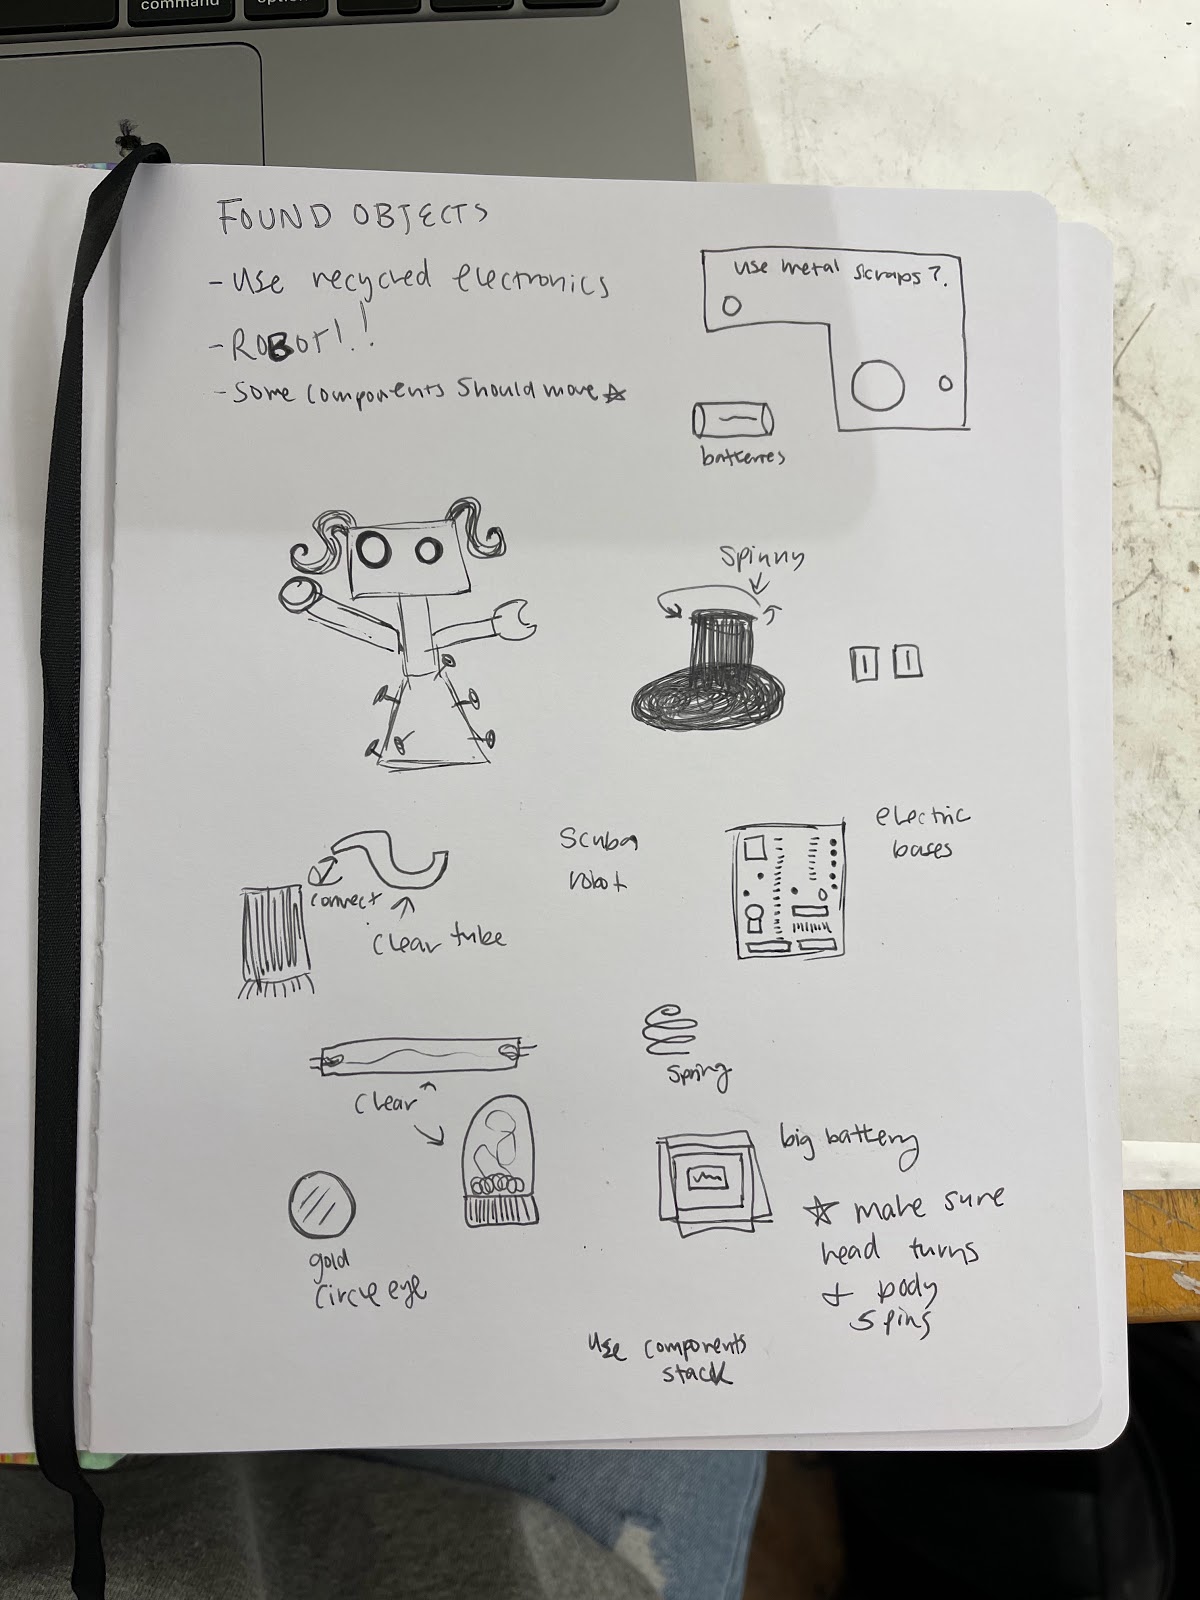 command
option
FOUND OBJECTS
- Use recycled electronics
- ROBOT!!
- Some components should move ☆
Use metal scraps?
batterres
Spinny
Scuba
robot
electric
bases
connect
clear tube
Spring
clear
big battery
☆ make sure
head turns
+ body
spins
gold
circle eye
use components
stack